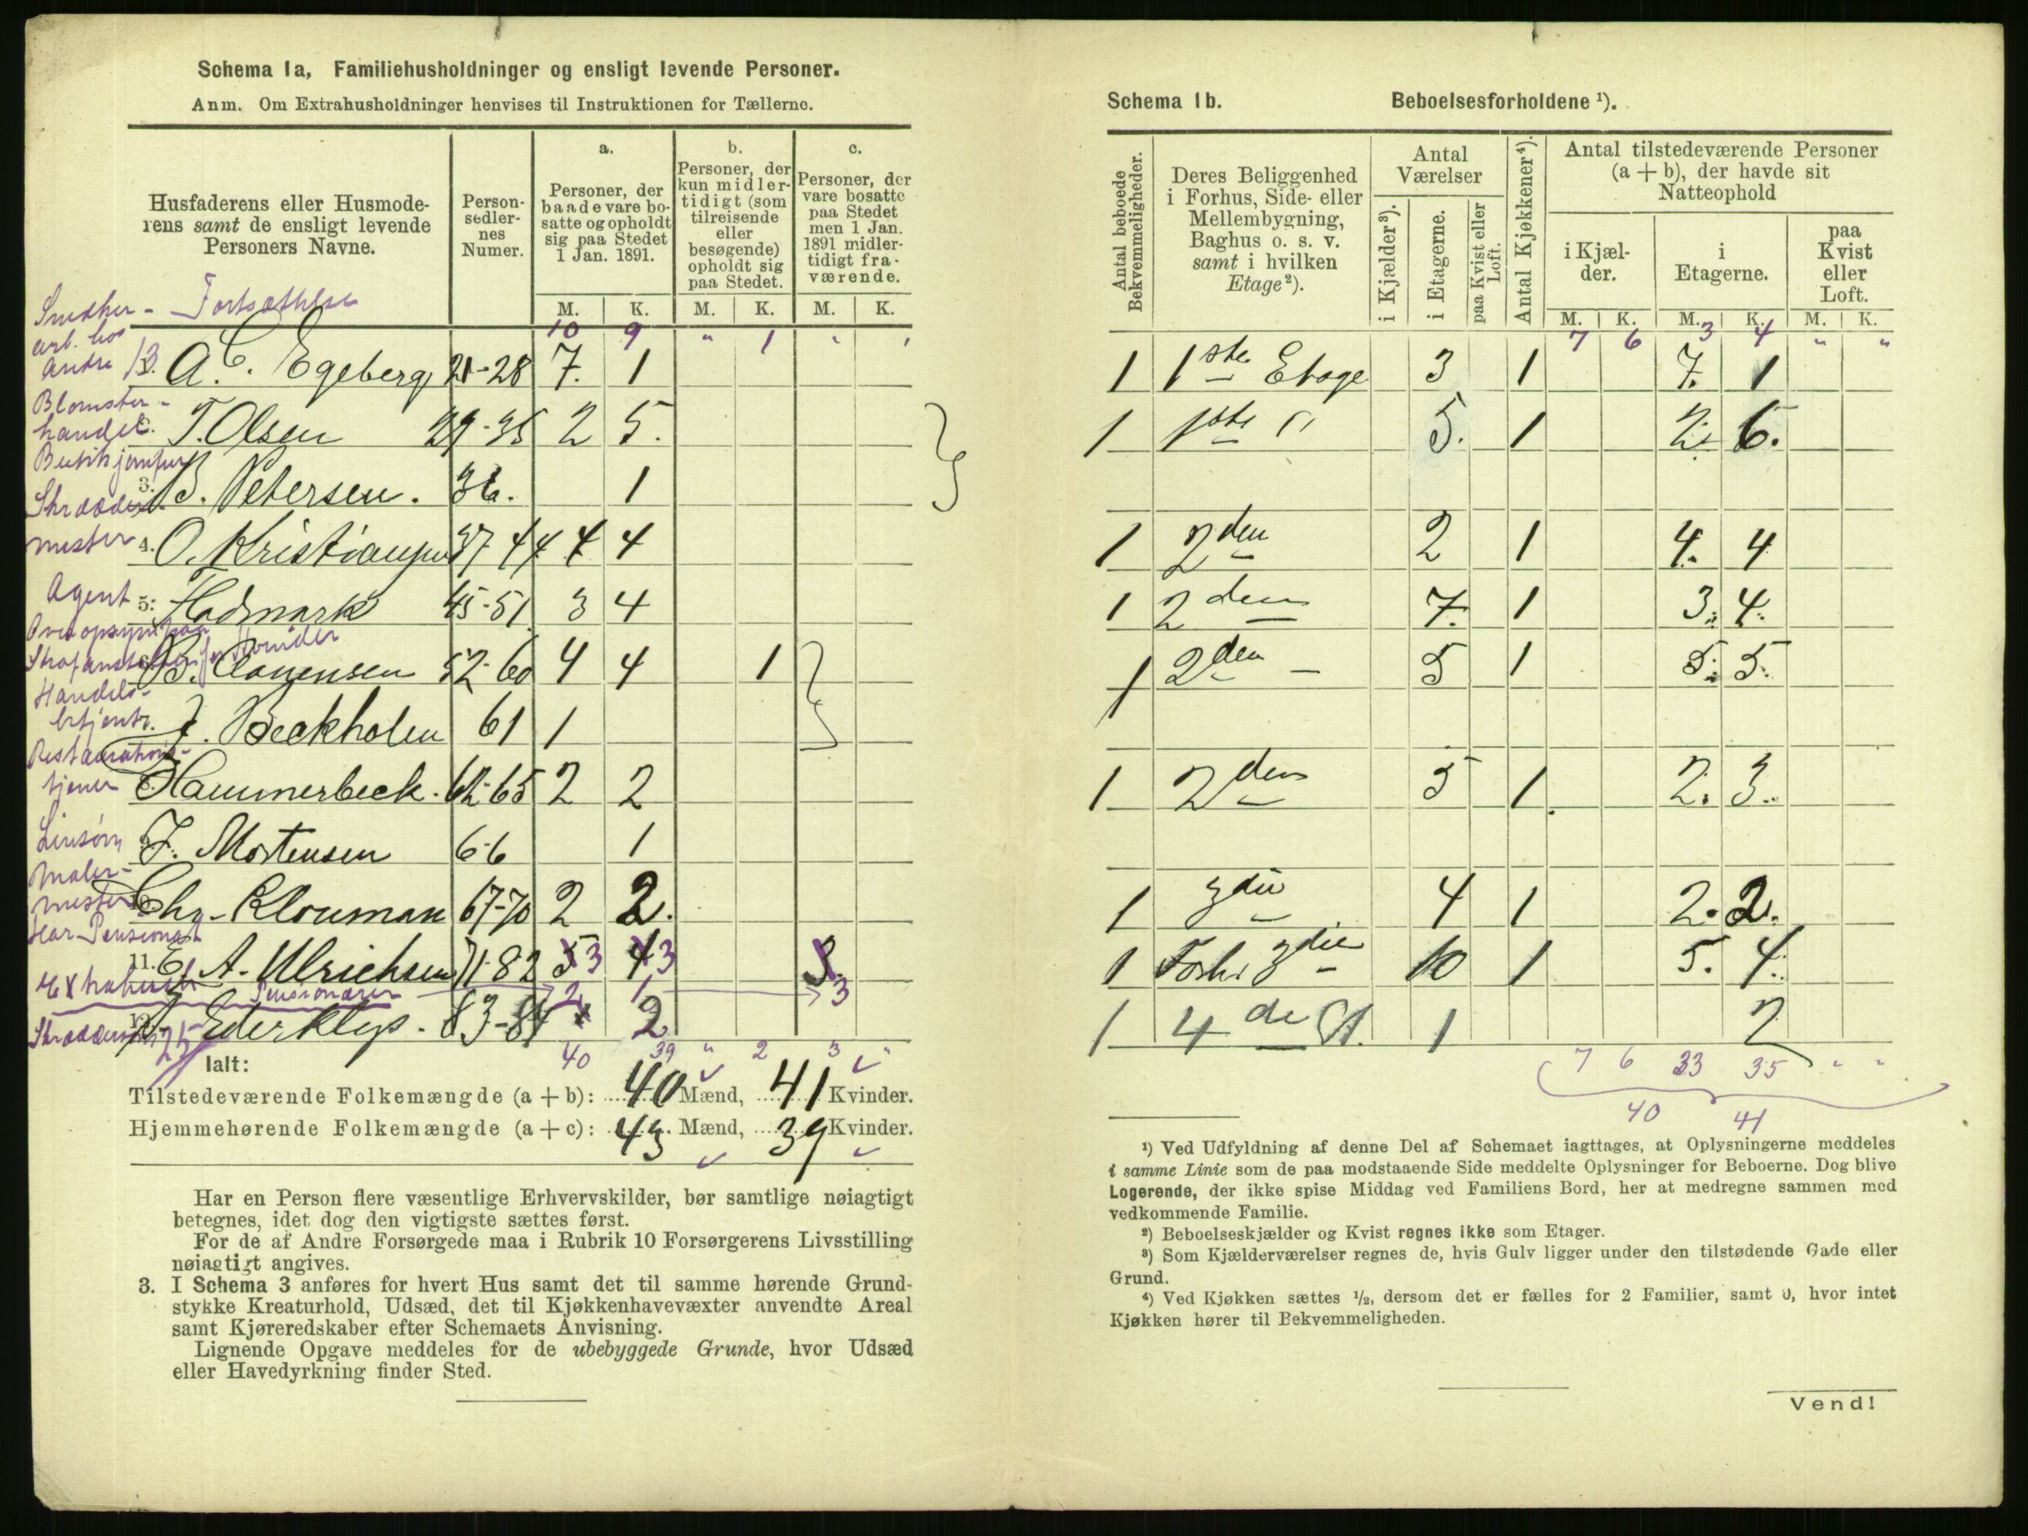 Schema 1a, Familiehusholdninger og ensligt levende Personer.
Anm. Om Extrahusholdninger henvises til Instruktionen for Tællerne.
Husfaderens eller Husmode-
rens samt de ensligt levende
Personers Navne.
Person-
sedler-
nes
Numer.
a.
Personer, der
baade vare bo-
satte og opholdt
sig paa Stedet
1 Jan. 1891.
b.
Personer, der
kun midler-
tidigt (som
tilreisende
eller
besøgende)
opholdt sig
paa Stedet.
c.
Personer, der
vare bosatte
paa Stedet
men 1 Jan.
1891 midler-
tidigt fra-
værende.
M. K. M. K. M. K.
Snedker- Fortsættelse
10 9 " 1 " "
arb. hos
Andre 13. A. C. Egeberg 21-28 7. 1
Blomster-
handel. T. Olsen 29-35 2 5.
3. B. Petersen. 36. 1
Skrædder-
mester 4. O. Kristiansen 37 44 4 4
Agent 5. Hadmark 45-51 3 4
B. Clauensen 52-60 4 4 1
Handels-
betjent. J. Beckholen 61 1
Restaurations-
tjener Hammerbeck. 62-65 2 2
J. Mortensen 66 1
Maler-
mester Chr. Klouman 67-70 2 2.
Har Pensionat
11. E. A. Ulrichsen 71-82 5 3 4 3 3.
Pensionærer 2 1 3
12. Ederklep. 83-84 2
25
Ialt: 40 39 " 2 3 "
Tilstedeværende Folkemængde (a + b): 40 Mænd, 41 Kvinder.
Hjemmehørende Folkemængde (a + c): 43 Mænd, 39 Kvinder.
Har en Person flere væsentlige Erhvervskilder, bør samtlige nøiagtigt
betegnes, idet dog den vigtigste sættes først.
For de af Andre Forsørgede maa i Rubrik 10 Forsørgerens Livsstilling
nøiagtigt angives.
3. I Schema 3 anføres for hvert Hus samt det til samme hørende Grund-
stykke Kreaturhold, Udsæd, det til Kjøkkenhavevæxter anvendte Areal
samt Kjøreredskaber efter Schemaets Anvisning.
Lignende Opgave meddeles for de ubebyggede Grunde, hvor Udsæd
eller Havedyrkning finder Sted.
Schema 1b. Beboelsesforholdene ¹).
Antal beboede
Bekvemmeligheder.
Deres Beliggenhed
i Forhus, Side- eller
Mellembygning,
Baghus o. s. v.
samt i hvilken
Etage²).
Antal
Værelser
i Kjælder³).
i Etagerne.
paa Kvist eller
Loft.
Antal Kjøkkener⁴).
Antal tilstedeværende Personer
(a + b), der havde sit
Natteophold
i Kjæl-
der.
i
Etagerne.
paa
Kvist
eller
Loft.
M. K. M. K. M. K.
7 6 3 4 " "
1 1ste Etage 3 1 7. 1
1 1ste " 5. 1 2. 6.
1 2den 2 1 4. 4
1 2den 7. 1 3. 4.
1 2den 5 1 5. 5.
1 2den 5 1. 2. 3.
1 3die 4 1 2. 2.
1 Forh. 3die 10 1 5. 4.
1 4de Et. 1 2
7 6 33 35 " "
40 41
¹) Ved Udfyldning af denne Del af Schemaet iagttages, at Oplysningerne meddeles
i samme Linie som de paa modstaaende Side meddelte Oplysninger for Beboerne. Dog blive
Logerende, der ikke spise Middag ved Familiens Bord, her at medregne sammen med
vedkommende Familie.
²) Beboelseskjælder og Kvist regnes ikke som Etager.
³) Som Kjælderværelser regnes de, hvis Gulv ligger under den tilstødende Gade eller
Grund.
⁴) Ved Kjøkken sættes ½, dersom det er fælles for 2 Familier, samt 0, hvor intet
Kjøkken hører til Bekvemmeligheden.
Vend!